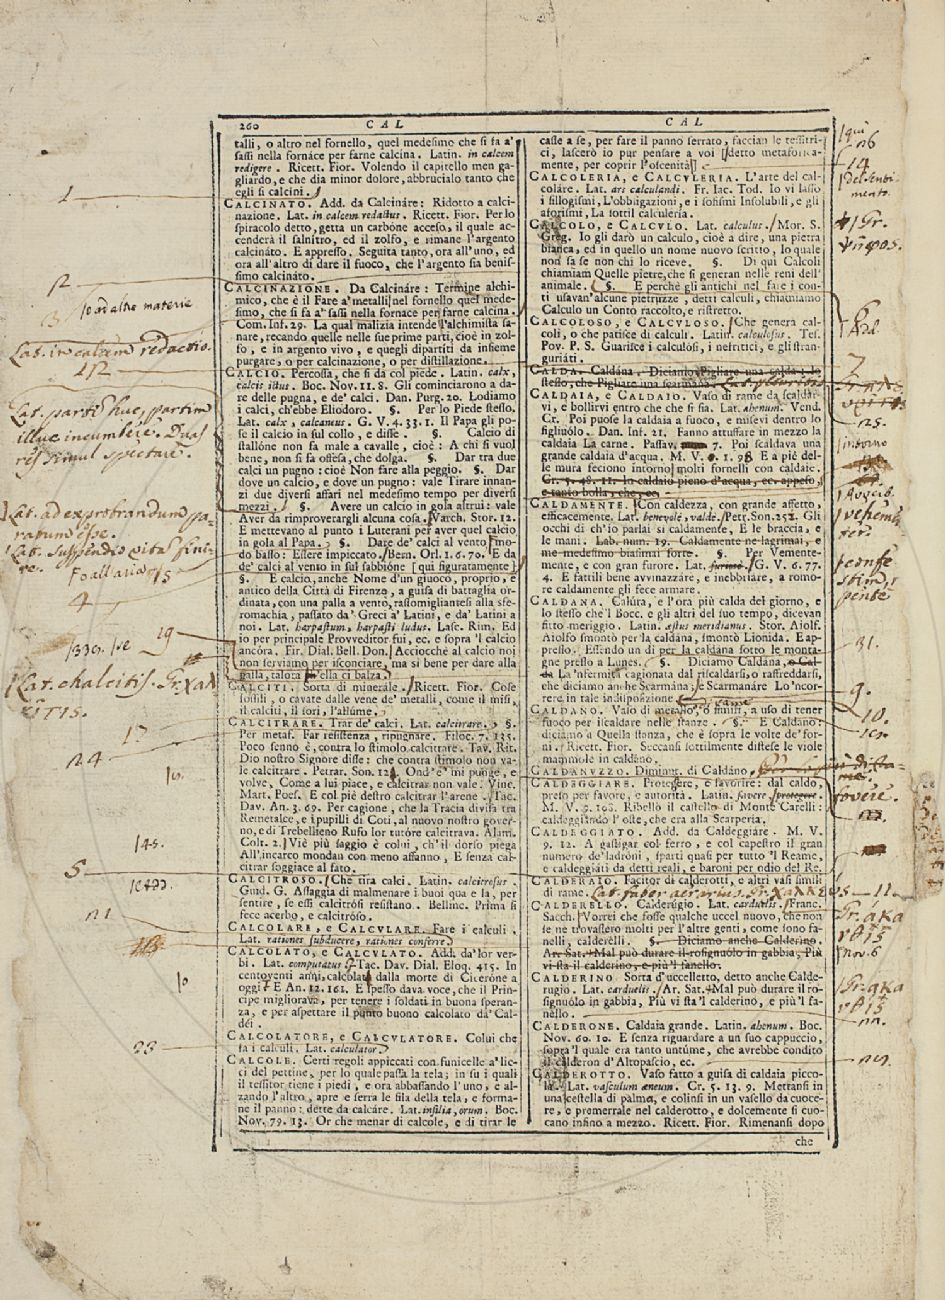 260 CAL CAL
talli, o altro nel fornello, quel medesimo che si fa a'
sassi nella fornáce per farne calcina. Latin. in calcem
redigere. Ricett. Fior. Volendo il capitello men ga-
gliardo, e che dia minor dolore, abbrucialo tanto che
egli si calcini.
CALCINATO. Add. da Calcináre: Ridotto a calci-
nazione. Lat. in calcem redactus. Ricett. Fior. Per lo
spiracolo detto, getta un carbóne acceso, il quale ac-
cenderà il salnitro, ed il zolfo, e rimane l'argento
calcináto. E appresso. Seguita tanto, ora all'uno, ed
ora all'altro di dare il fuoco, che l'argento sia benis-
simo calcináto.
CALCINAZIONE. Da Calcináre: Termine alchi-
mico, che è il Fare a' metalli, nel fornello quel mede-
simo, che si fa a' sassi nella fornace per farne calcina.
Com. Inf. 29. La qual malizia intende l'alchimista sa-
nare, recando quelle nelle sue prime parti, cioè in zol-
fo, e in argento vivo, e quegli dipartíti da insieme
purgare, o per calcinazione, o per distillazione.
CALCIO. Percossa, che si dà col piede. Latin. calx,
calcis ictus. Boc. Nov. 11. 8. Gli cominciarono a da-
re delle pugna, e de' calci. Dan. Purg. 20. Lodiamo
i calci, ch'ebbe Eliodoro. §. Per lo Piede stesso.
Lat. calx, calcaneus. G. V. 4. 33. 1. Il Papa gli po-
se il calcio in sul collo, e disse. §. Calcio di
stallóne non fa male a cavalle, cioè: A chi si vuol
bene, non si fa offésa, che dolga. §. Dar tra due
calci un pugno: cioè Non fare alla peggio. §. Dar
dove un calcio, e dove un pugno: vale Tirare innan-
zi due diversi affari nel medesimo tempo per diversi
mezzi. §. Avere un calcio in gola altrui: vale
Aver da rimproverargli alcuna cosa. Varch. Stor. 12.
E mettevano al punto i Luterani per aver quel calcio
in gola al Papa. §. Dare de' calci al vento, mo-
do basso: Essere impiccato. Bern. Orl. 1. 6. 70. E da
de' calci al vento in sul sabbióne [qui figuratamente]
§. E calcio, anche Nome d'un giuoco, proprio, e
antico della Città di Firenze, a guisa di battaglia or-
dinata, con una palla a vento, rassomigliantesi alla sfe-
romachia, passato da' Greci a' Latini, e da' Latini a
noi. Lat. harpastum, harpasti ludus. Lasc. Rim. Ed
io per principale Provveditor fui, ec. e sopra 'l calcio
ancóra. Fir. Dial. Bell. Don. Acciocchè al calcio noi
non serviamo per isconciare, ma si bene per dare alla
palla, talora ella ci balza.
CALCITI. Sorta di minerale. Ricett. Fior. Cose
fossili, o cavate dalle vene de' metalli, come il misi,
il calciti, il sori, l'allúme.
CALCITRARE. Trar de' calci. Lat. calcitrare. §.
Per metaf. Far resistenza, ripugnare. Filoc. 7. 135.
Poco senno è, contro lo stimolo calcitrare. Tav. Rit.
Dio nostro Signore disse: che contra stimolo non va-
le calcitrare. Petrar. Son. 124. Ond' e' mi punge, e
volve, Come a lui piace, e calcitrar non vale. Vinc.
Mart. Poes. E col piè destro calcitrar l'arene. Tac.
Dav. An. 3. 69. Per cagione, che la Tracia divisa tra
Remetalce, e i pupilli di Coti, al nuovo nostro gover-
no, e di Trebellieno Rufo lor tutóre calcitrava. Alam.
Colt. 2. Viè più saggio è colui, ch'il dorso piega
All'incarco mondan con meno affanno, E senza cal-
citrar soggiace al fato.
CALCITROSO. Che tira calci. Latin. calcitrosus.
Guid. G. Assaggia di malmenare i buoi qua e là, per
sentire, se essi calcitrósi resistano. Bellinc. Prima si
fece acerbo, e calcitróso.
CALCOLARE, e CALCVLARE. Fare i calculi.
Lat. rationes subducere, rationes conferre.
CALCOLATO, e CALCVLATO. Add. da' lor ver-
bi. Lat. computatus. Tac. Dav. Dial. Eloq. 415. In
centoventi anni, calcolati dalla morte di Ciceróne a
oggi. E An. 12. 161. E spesso dava voce, che il Prin-
cipe migliorava, per tenere i soldati in buona speran-
za, e per aspettare il punto buono calcolato da' Cal-
déi.
CALCOLATORE, e CALCVLATORE. Colui che
fa i calculi. Lat. calculator.
CALCOLE. Certi regoli appiccati con funicelle a' lic-
ci del pettine, per lo quale passa la tela; in su i quali
il tessitor tiene i piedi, e ora abbassando l'uno, e al-
zando l'altro, apre e serra le fila della tela, e forma-
ne il panno: dette da calcáre. Lat. insilia, orum. Boc.
Nov. 79. 13. Or che menar di calcole, e di tirar le
casse a se, per fare il panno serrato, faccian le tessitri-
ci, lascerò io pur pensare a voi [detto metaforica-
mente, per coprir l'oscenità]
CALCOLERIA, e CALCVLERIA. L'arte del cal-
coláre. Lat. ars calculandi. Fr. Iac. Tod. Io vi lasso
i sillogismi, L'obbligazioni, e i sofismi Insolubili, e gli
aforismi, La sottil calculería.
CALCOLO, e CALCVLO. Lat. calculus. Mor. S.
Greg. Io gli darò un calculo, cioè a dire, una pietra
bianca, ed in quello un nome nuovo scritto, lo quale
non sa se non chi lo riceve. §. Di quì Calcoli
chiamiam Quelle pietre, che si generan nelle reni dell'
animale. §. E perchè gli antichi nel fare i con-
ti usavan' alcune pietruzze, detti calculi, chiamiamo
Calculo un Conto raccolto, e ristretto.
CALCOLOSO, e CALCVLOSO. Che genera cal-
coli, o che patisce di calculi. Latin. calculosus. Tes.
Pov. P. S. Guarisce i calculósi, i nefritici, e gli stran-
guriáti.
CALDA. Caldána. Diciamo Pigliare una calda: lo
stesso, che Pigliare una scarmana. Lat. pleuritis
CALDAIA, e CALDAIO. Vaso di rame da scaldar-
vi, e bollirvi entro che che si sia. Lat. ahenum. Vend.
Cr. Poi puose la caldaia a fuoco, e misevi dentro lo
figliuolo. Dan. Inf. 21. Fanno attuffare in mezzo la
caldaia La carne. Passav. 7. Poi scaldava una
grande caldaia d'acqua. M. V. 1. 98. E a piè del-
le mura feciono intorno molti fornelli con caldaie.
Cr. 5. 48. 11. In caldaio pieno d'acqua, ec. appeso,
e tanto bolla, che, ec.
CALDAMENTE. Con caldezza, con grande affetto,
efficacemente. Lat. benevole, valde. Petr. Son. 252. Gli
occhi di ch'io parlai sì caldamente. E le braccia, e
le mani. Lab. num. 19. Caldamente ne lagrimai, e
me medesimo biasimai forte. §. Per Vemente-
mente, e con gran furore. Lat. G. V. 6. 77.
4. E fattili bene avvinazzare, e inebbriare, a romo-
re caldamente gli fece armare.
CALDANA. Calúra, e l'ora più calda del giorno, e
lo stesso che 'l Bocc. e gli altri del suo tempo, dicevan
fitto-meriggio. Latin. æstus meridianus. Stor. Aiolf.
Aiolfo smontò per la caldána, smontò Lionida. E ap-
presso. Essendo un dì per la caldana sotto le monta-
gne presso a Lunes. §. Diciamo Caldána, o Cal-
da La 'nfermità cagionata dal riscaldarsi, o raffreddarsi,
che diciamo anche Scarmána; e Scarmanáre Lo 'ncor-
rere in tale indisposizione.
CALDANO. Vaso di metallo, o simili, a uso di tener
fuoco per iscaldare nelle stanze. §. E Caldáno:
diciamo a Quella stanza, che è sopra le volte de' for-
ni. Ricett. Fior. Seccansi sottilmente distese le viole
mammole in caldáno.
CALDANVZZO. Diminut. di Caldáno.
CALDEGGIARE. Proteggere, e favorire: dal caldo,
preso per favore, e autorità. Latin. favere, protegere.
M. V. 9. 108. Ribellò il castello di Monte Carelli:
caldeggiando l'oste, che era alla Scarperia.
CALDEGGIATO. Add. da Caldeggiare. M. V.
9. 12. A gastigar col ferro, e col capestro il gran
numero de' ladróni, sparti quasi per tutto 'l Reame,
e caldeggiati da detti reali, e baroni per odio del Re.
CALDERAIO. Facitor di calderotti, e altri vasi simili
di rame. Lat. faber aerarius. Gr. χαλκεύς 11.
CALDERELLO. Calderúgio. Lat. carduelis. Franc.
Sacch. Vorrei che fosse qualche uccel nuovo, che non
se ne trovassero molti per l'altre genti, come sono fa-
nelli, calderelli. §. Diciamo anche Calderino.
Ar. Sat. Mal può durare il rosignuolo in gabbia, Più
vi sta il calderino, e più 'l fanello.
CALDERINO. Sorta d'uccelletto, detto anche Calde-
rugio. Lat. carduelis. Ar. Sat. Mal può durare il ro-
signuólo in gabbia, Più vi sta 'l calderino, e più 'l fa-
nello.
CALDERONE. Caldaia grande. Latin. ahenum. Boc.
Nov. 60. 10. E senza riguardare a un suo cappuccio,
sopra 'l quale era tanto untúme, che avrebbe condito
il calderon d'Altopascio, ec.
CALDEROTTO. Vaso fatto a guisa di caldaia picco-
la. Lat. vasculum æneum. Cr. 5. 13. 9. Mettansi in
una cestella di palma, e colinsi in un vasello da cuoce-
re, e promerrale nel calderotto, e dolcemente si cuo-
cano infino a mezzo. Ricett. Fior. Rimenansi dopo
che
1
2
o ad altre materie
Lat. in calcem redactio.
Lat. partim huc, partim
illuc incumbere. Duas
res simul spectare.
Lat. ad exprobrandum pa-
ratum esse.
Lat. suspendio vitam fini-
re.
Fo all'aria
15
4
29
Lat. chalcitis. Gr. χαλ
κῖτις.
17
24
lo.
145.
5
21
lo
23
qui
26
14
del senti-
mento.
Gr.
ψῆφος.
Kal.
25.
intorno
vehemen
ter
confe
stim,
31.
9.
10.
fovere.
Gr. ἀκα
νθίς
nov. 6
Gr. ἀκα
νθίς